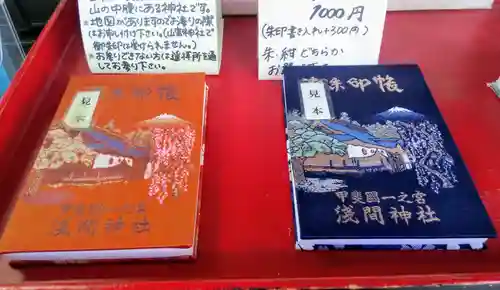 山の中腹にある神社です。
*地図がありますのでお参りの際
はお申し付け下さい。(山宮神社で
御朱印は授けられません。)
*お参りできない方は遥拝所を通
してお参り下さい。
1000円
(朱印書き入れ+300円)
朱・紺 どちらか
朱印帳
見本
甲斐國一之宮
浅間神社
朱印帳
見本
甲斐國一之宮
浅間神社